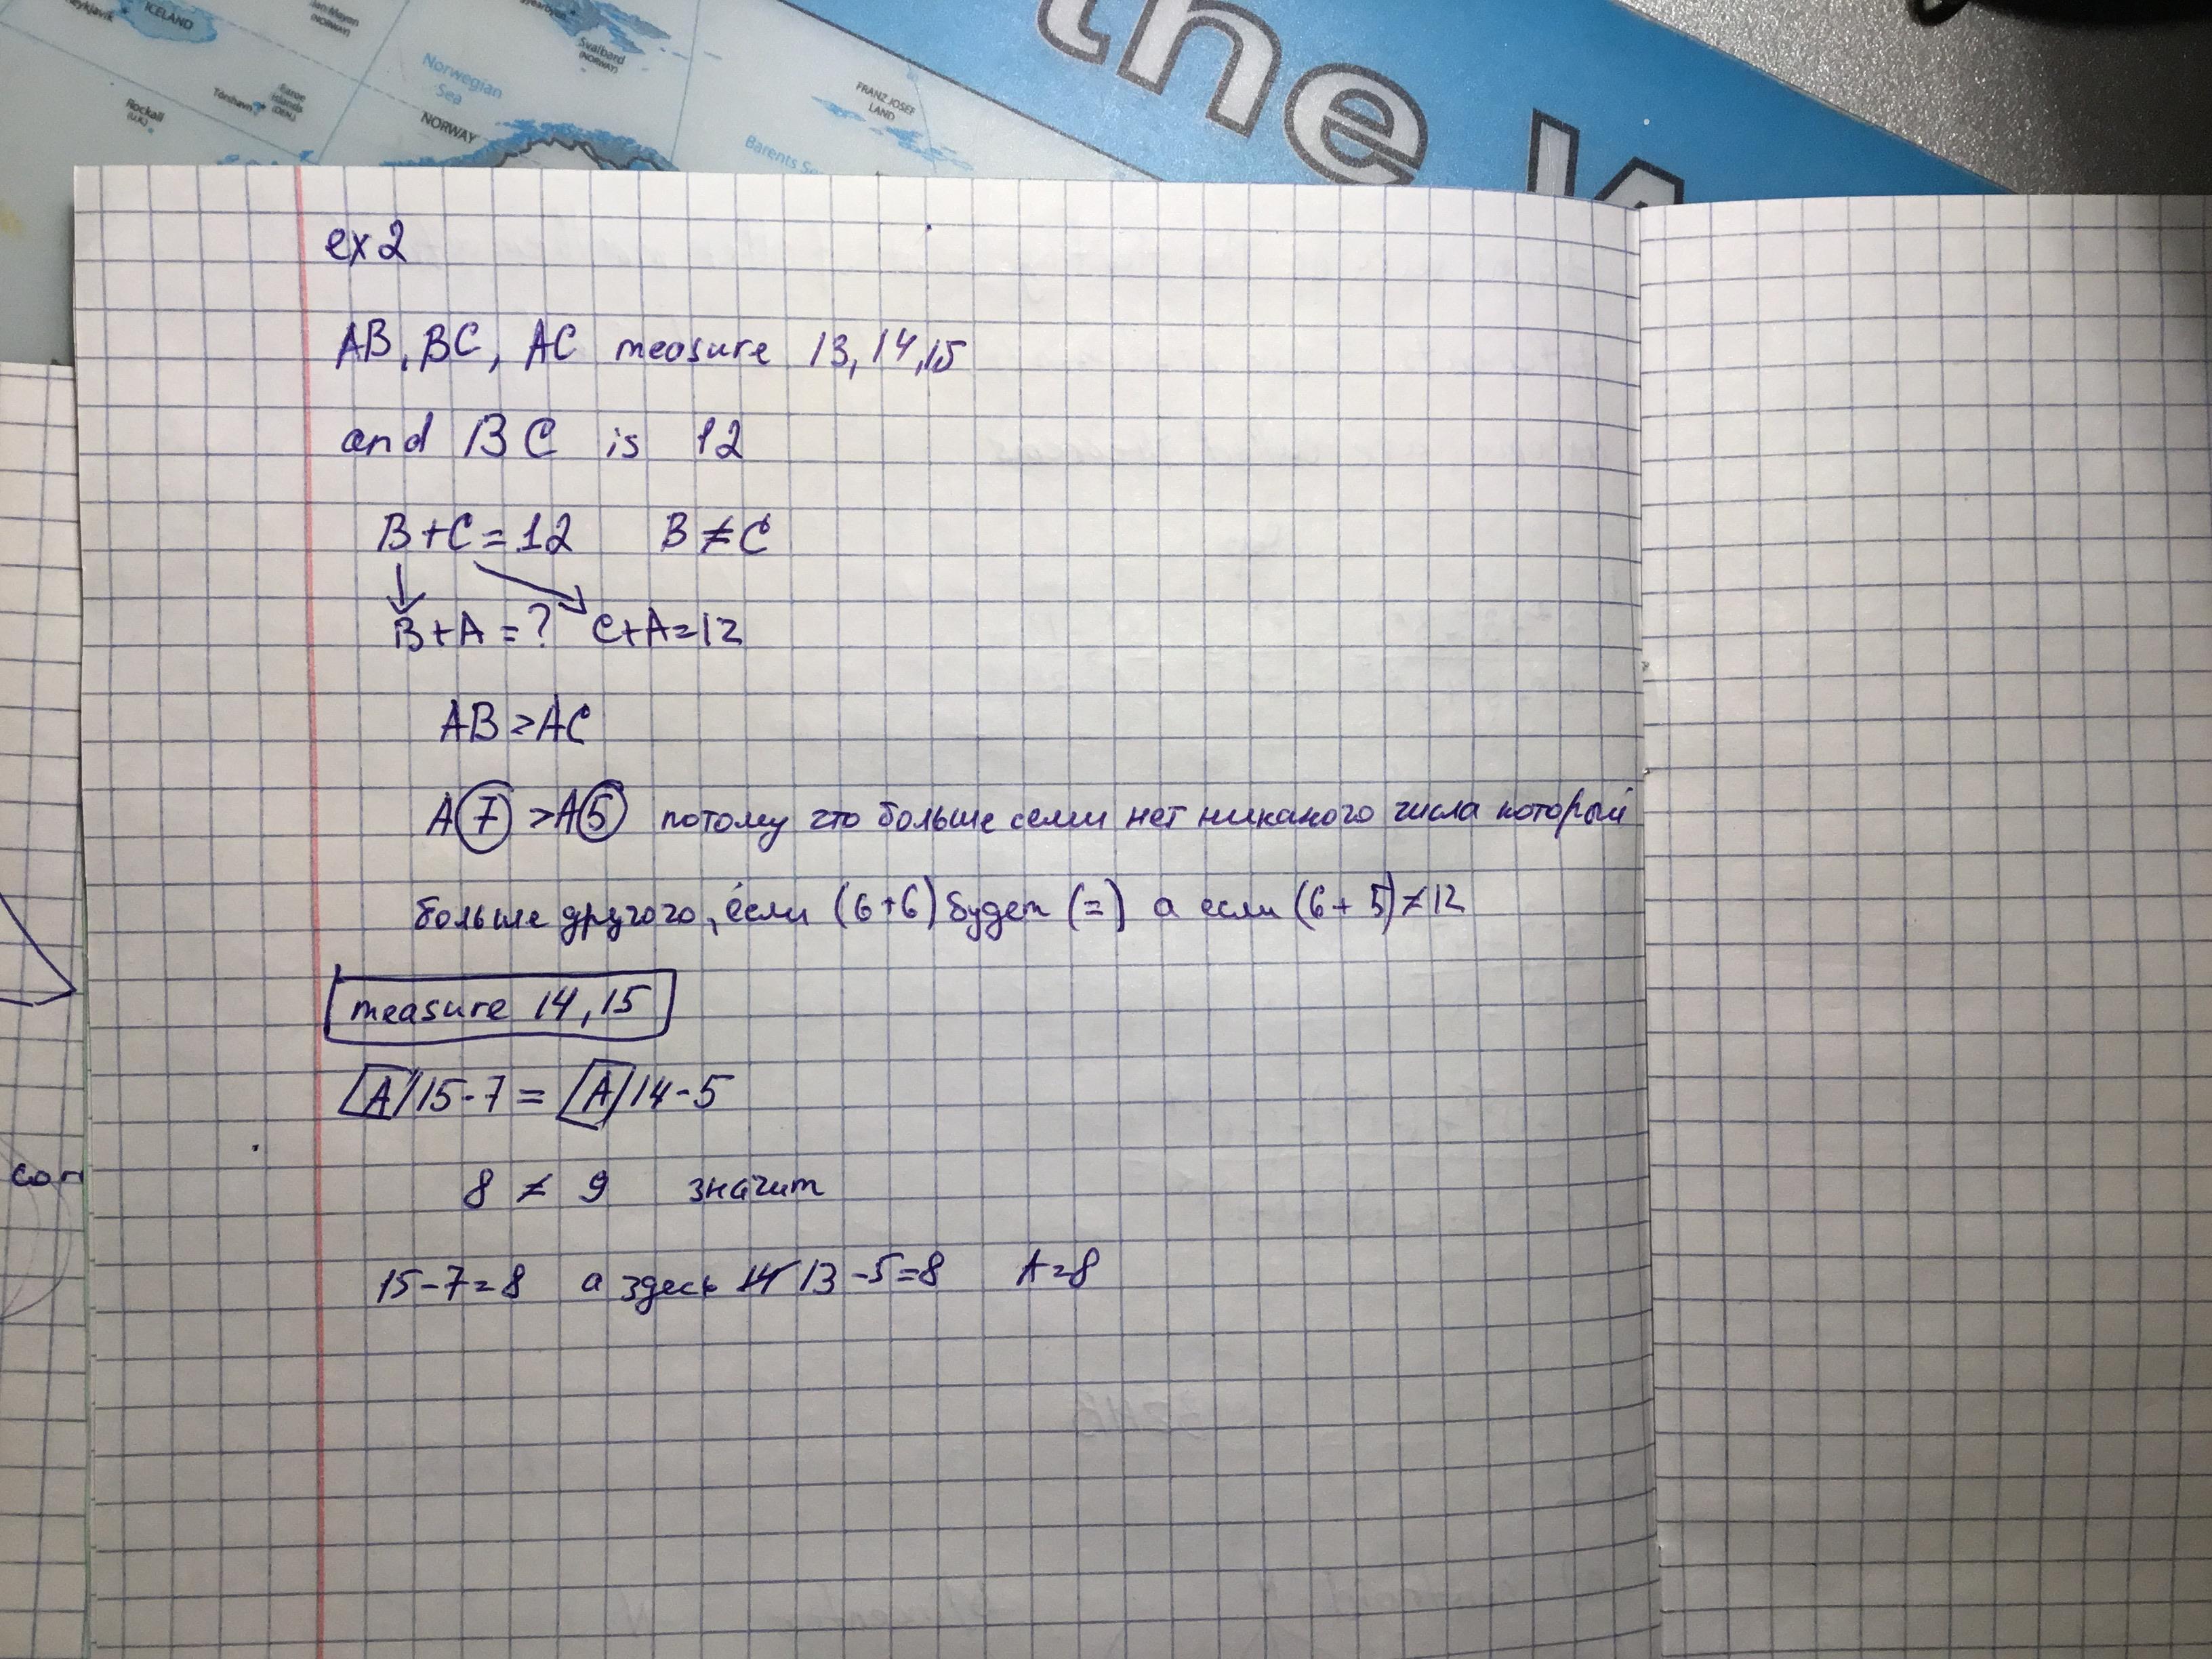 Reykjavik
ICELAND
Jan Mayen
(NORWAY)
Norwegian
Sea
Svalbard
(NORWAY)
Rockall
(U.K.)
Tórshavn
Faroe
Islands
(DEN.)
NORWAY
FRANZ JOSEF
LAND
Barents Sea
the W
ex 2
AB, BC, AC measure 13, 14, 15
and BC is 12
B+C=12 B≠C
B+A=? C+A=12
AB>AC
A(7)>A(5) потому что больше семи нет никакого числа который
больше другого, если (6+6) будет (=) а если (6+5)≠12
measure 14, 15
A/15-7 = A/14-5
8 ≠ 9 значит
15-7=8 а здесь 14 13-5=8 A=8
con